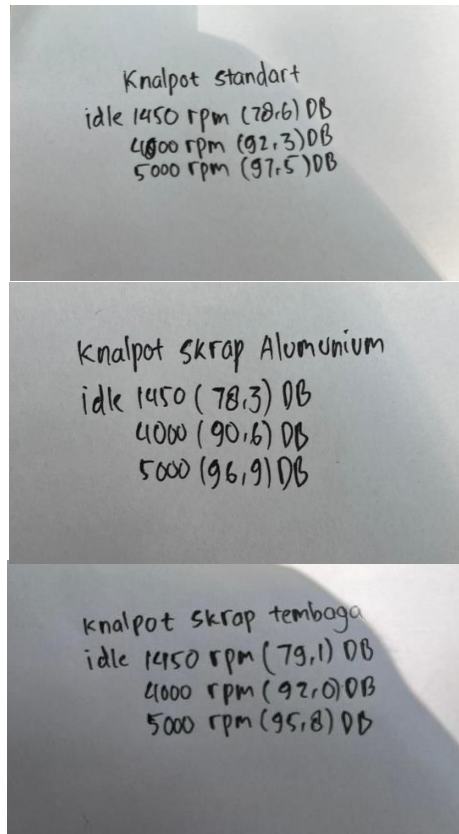 Knalpot standart
idle 1450 rpm (78,6) DB
4000 rpm (92,3) DB
5000 rpm (97,5) DB
Knalpot skrap Alumunium
idle 1450 (78,3) DB
4000 (90,6) DB
5000 (96,9) DB
Knalpot skrap tembaga
idle 1450 rpm (79,1) DB
4000 rpm (92,0) DB
5000 rpm (95,8) DB